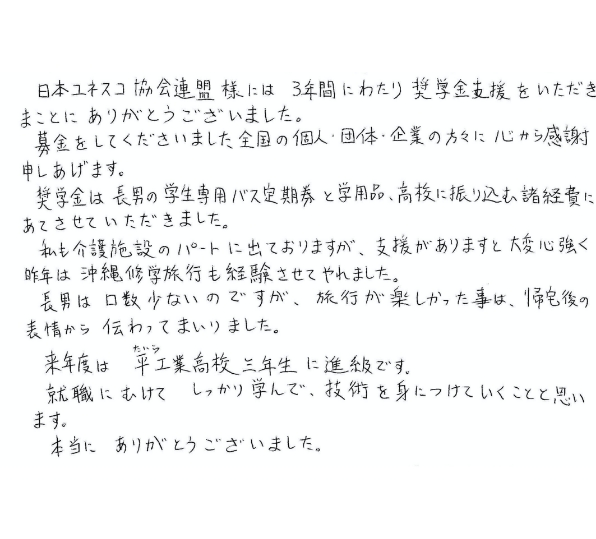 日本ユネスコ協会連盟様には 3年間にわたり 奨学金支援をいただき
まことに ありがとうございました。
募金をしてくださいました全国の個人・団体・企業の方々に 心から感謝
申しあげます。
奨学金は 長男の学生専用バス定期券と学用品、高校に振り込む諸経費に
あてさせていただきました。
私も介護施設のパートに出ておりますが、支援がありますと大変心強く
昨年は 沖縄修学旅行も経験させてやれました。
長男は 口数少ないのですが、旅行が楽しかった事は、帰宅後の
表情から 伝わってまいりました。
来年度は 平(たいら)工業高校 三年生に進級です。
就職にむけて しっかり学んで、技術を身につけていくことと思い
ます。
本当に ありがとうございました。